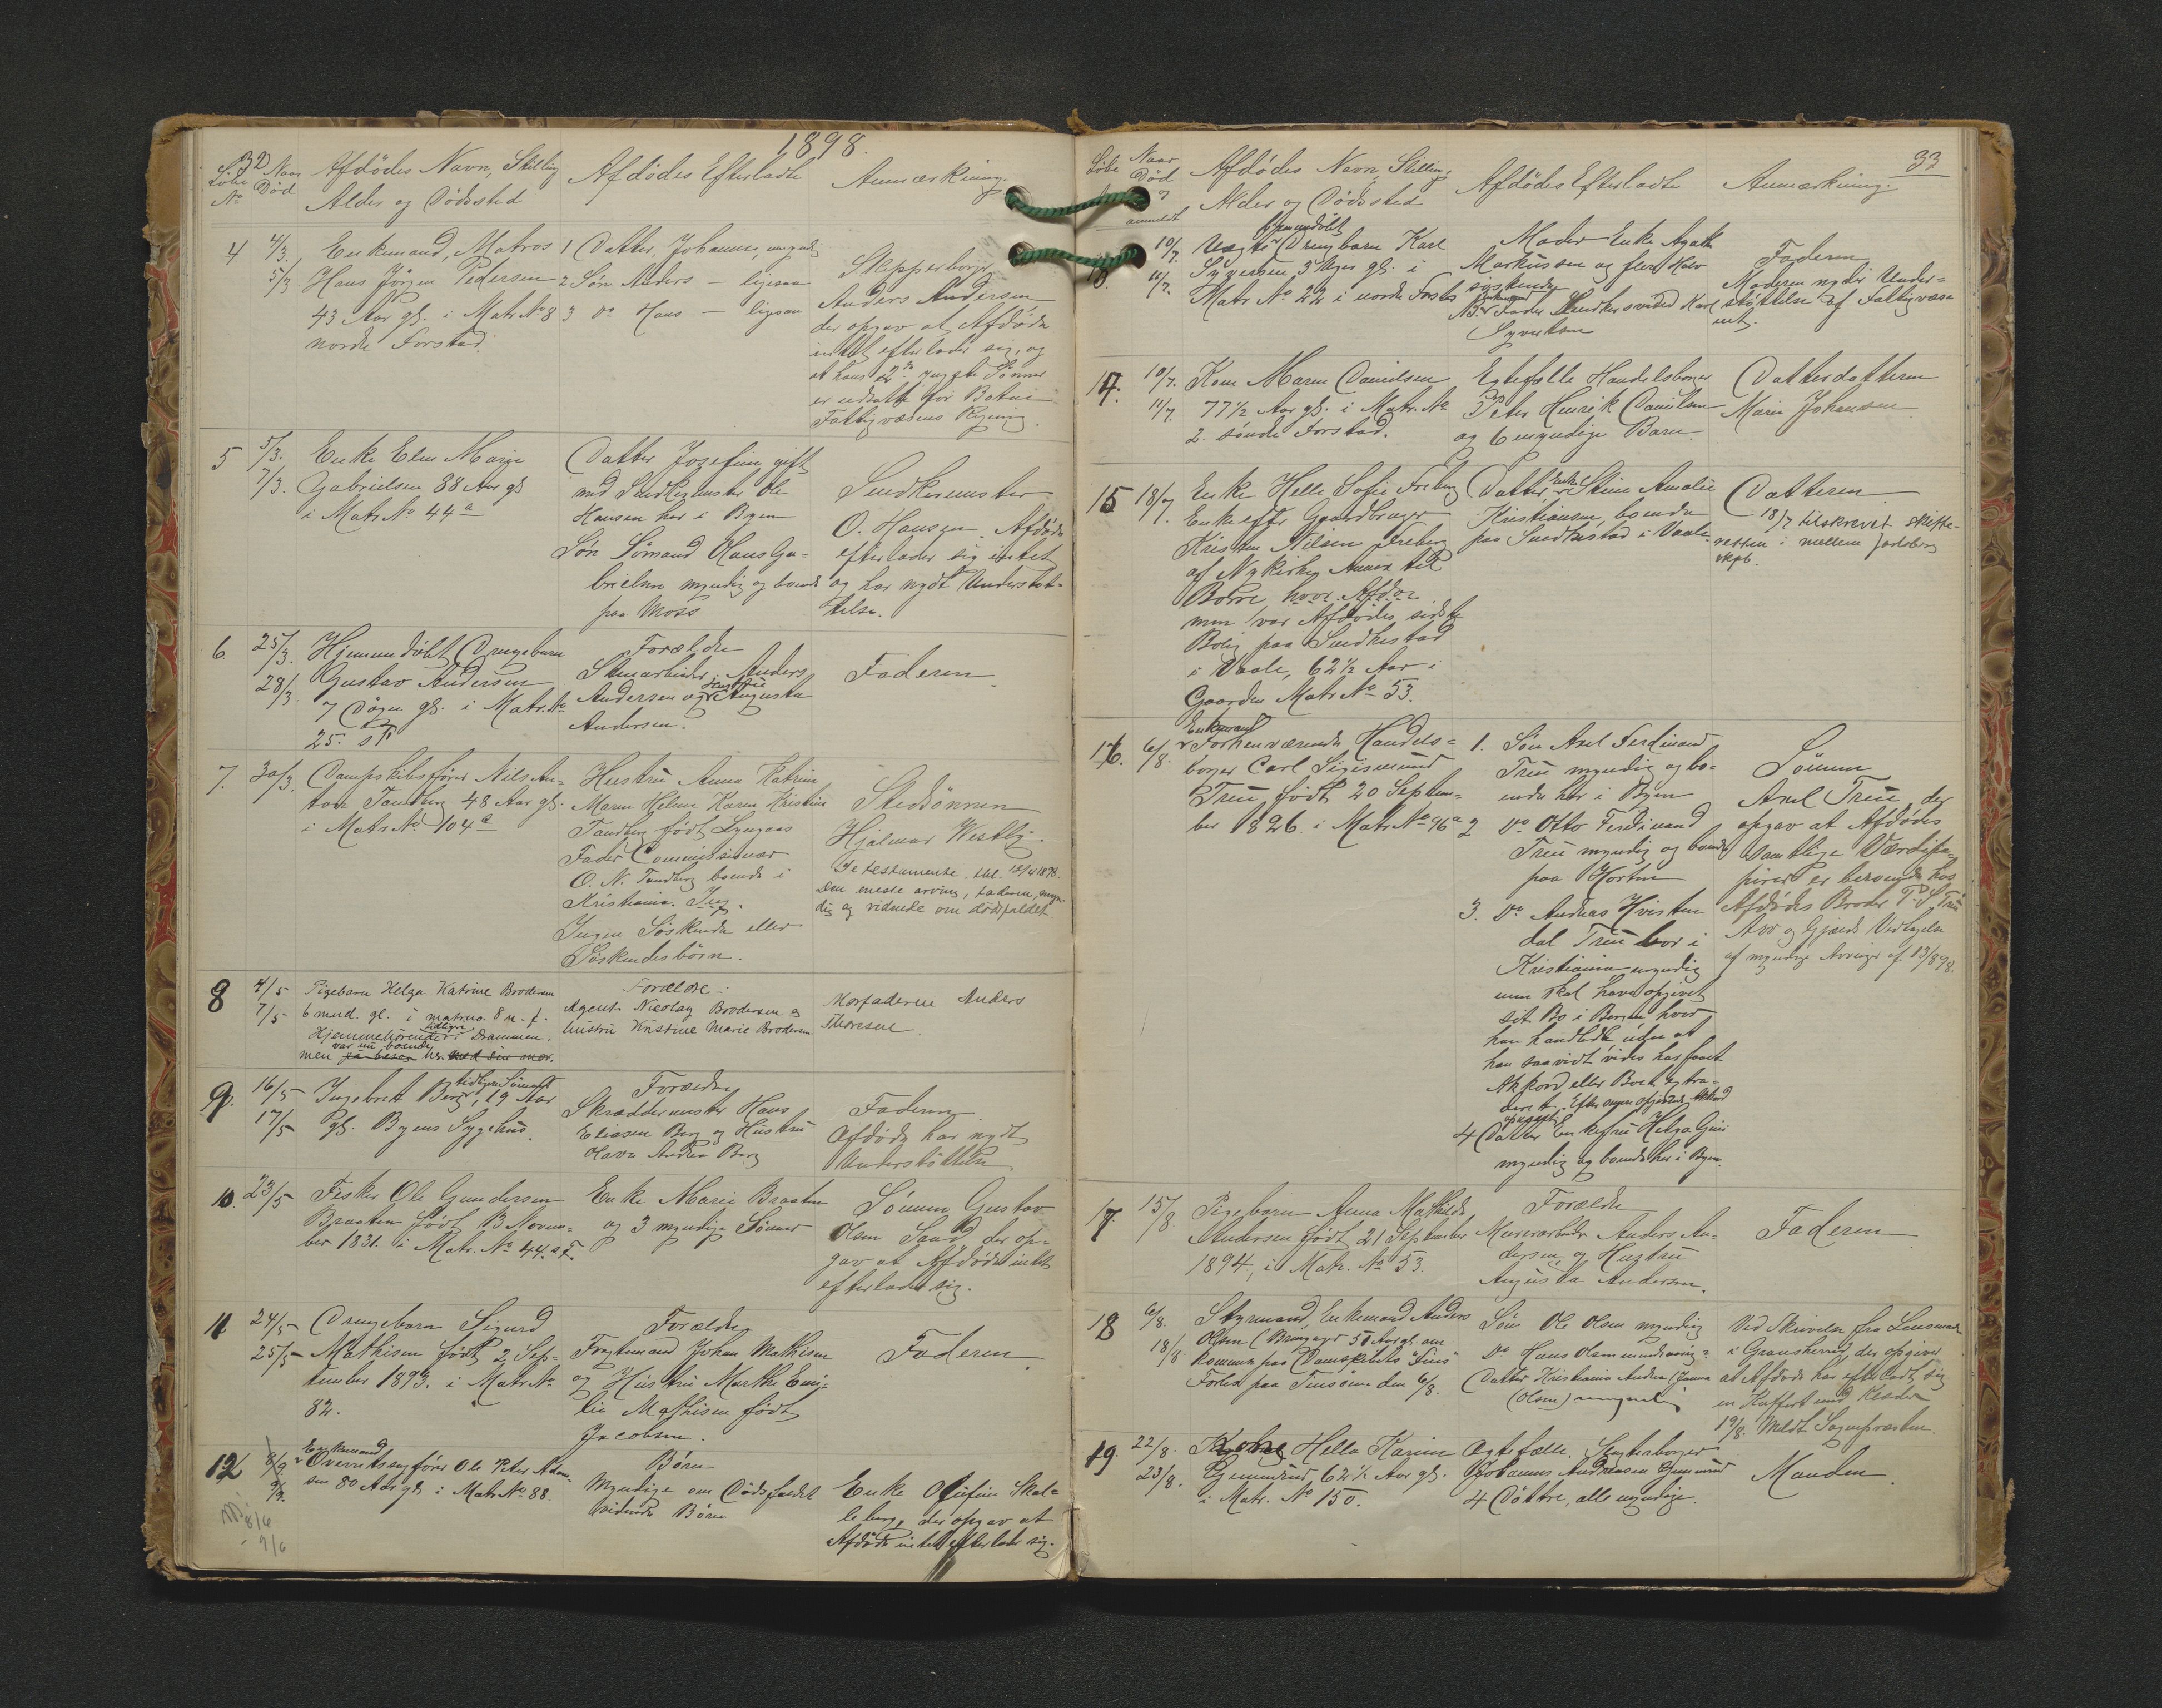 1898.
32
Løbe No
Naar Död
Afdödes Navn, Stilling
Alder og Dödssted
Afdödes Efterladte
Anmærkning.
4
4/3.
5/3
Enkemand, Matros
Hans Jörgen Pedersen
43 Aar gl. i Matr. No 8
nordre Forstad.
1 Datter, Johanne, umyndig
2 Sön Anders — ligesaa
3 do Hans — ligesaa
Skipperborger
Anders Andersen
der opgav at Afdöde
intet efterlader sig, og
at hans 2de yngste Sönner
er udsatte for Botne
Fattigvæsens Regning.
5
5/3.
7/3.
Enke Elen Marie
Gabrielsen 88 Aar gl
i Matr No 44a
Datter Josefine gift
med Snedkermester Ole
Hansen her i Byen
Sön Sömand Hans Ga-
brielsen myndig og boende
paa Moss
Snedkermester
O. Hansen. Afdöde
efterlader sig intet
og har nydt Understöt-
telse.
6.
25/3.
28/3.
Hjemmedöbt Drengebarn
Gustav Andersen
7 Dögn gl. i Matr. No
25. sF
Forældre
Stenarbeider Anders
Andersen og Hustru Augusta
Andersen.
Faderen.
7.
30/3.
Dampskibsförer Nils An-
ton Tandberg 48 Aar gl.
i Matr. No 104a
Hustru Anna Katrine
Maren Helene Karen Kristine
Tandberg födt Lyngaas
Fader Commissionær
O. N. Tandberg boende i
Kristiania.
Ingen Söskende eller
Söskendebörn.
Stedsönnen
Hjalmar Westby.
Se testamente.
Den eneste arving, faderen, myn-
dig og vidende om dödsfaldet.
8
4/5
7/5
Pigebarn Helga Katrine Brodersen
6 mnd. gl. i matrno. 8 n. f.
Hjemmehörende tidligere i Drammen,
men var nu boende her med sin mor.
Forældre:
Agent Nicolay Brodersen og
hustru Kristine Marie Brodersen
Morfaderen Anders
Thoresen.
9.
16/5
17/5
Ingebret Berg, tidligere Sömand, 19 Aar
gl. Byens Sygehus.
Forældre
Skræddermester Hans
Eliasen Berg og Hustru
Olava Andrea Berg
Faderen.
Afdöde har nydt
Understöttelse.
10.
23/5
Fisker Ole Gundersen
Braaten födt 13 Novem-
ber 1831. i Matr. No 44. s F.
Enke Marie Braaten
og 3 myndige Sönner
Sönnen Gustav
Olsen Sand, der op-
gav at Afdöde intet
efterlader sig.
11
24/5
25/5
Drengebarn Sigurd
Mathisen födt 2 Sep-
tember 1893. i Matr No
82.
Forældre
Fragtemand Johan Mathisen
og Hustru Marthe Emi-
lie Mathisen födt
Jacobsen.
Faderen.
12
8/9.
9/9.
8/6
9/6
Enkemand
Overretssagförer Ole Peter Adam-
sen 80 Aar gl. i Matr No 88.
Börn
Myndige om Dödsfaldet
vidende Börn
Enke Olefine Skal-
leberg, der opgav at
Afdöde intet efterlader sig.
33
Löbe
Naar Död
anmeldt
Afdödes Navn, Stilling,
Alder og Dödssted
Afdödes Efterladte
Anmærkning.
13.
10/7.
11/7.
hjemmedöbt
Uægte Drengebarn Karl
Syversen 3 Uger gl. i
Matr No 22 i nordre Forst.
Moder Enke Agathe
Markussen og flere Halv
söskende
Fader Snedkersvend Karl
Syvertsen
Faderen
Moderen nyder Under-
støttelse af Fattigvæse
net.
14.
10/7.
11/7.
Kone Maren Danielsen
77 1/2 Aar gl. i Matr. No
2. söndre Forstad.
Egtefælle Handelsborger
Peter Henrik Danielsen
og 6 myndige Barn.
Datterdatteren
Marie Johansen.
15
18/7
Enke Helle Sofie Freberg
Enke efter Gaardbruger
Kristen Nilsen Freberg
af Nykirke Annex til
Borre hvor Afdöe
men var Afdödes sidste
Bolig paa Snedkestad
i Vaale, 62 1/2 Aar i
Gaarden Matr No 53.
Datter, Enke Stine Amalie
Kristiansen, boende
paa Snedkestad i Vaale
Datteren.
18/7 tilskrevet skifte-
retten i mellem Jarlsberg
skpb.
16.
6/8.
Enkemand
Forhenværende Handels-
borger Carl Sigismund
Treu födt 20 Septem-
ber 1826. i Matr No 96a
1. Sön Axel Ferdinand
Treu myndig og bo-
ende her i Byen
2 do Otto Ferdinand
Treu myndig og boende
paa Horten
3. do Andreas Hvisten
dal Treu bor i
Kristiania myndig
men skal have opgivet
sit Bo i Bergen hvor
han handlede uden at
han saavidt vides har faaet
Akkord eller Boet extra-
deret. Efter senere opgivende Akkord
4 Datter Enkefru Helga
myndig og boende her i Byen.
Sönnen
Axel Treu, der
opgav at Afdödes
samtlige Værdipa-
pirer er beroende hos
Afdödes Broder P. S. Treu
Arv og Gjælds Vedtagelse
af myndige Arvinger af 13/8 98.
17.
15/8.
Pigebarn Anna Mathilde
Andersen födt 21 September
1894, i Matr. No 53.
Forældre
Murerarbeider Anders An-
dersen og Hustru
Augusta Andersen.
Faderen
18
6/8.
18/8
Styrmand, Enkemand Anders
Olsen (Brungaar 50 Aar gl. om
kommen paa Dampskibets "Tins"
Forlis paa Tinsöen den 6/8.
Sön Ole Olsen myndig
do Hans Olsen mindreaarig
Datter Kristiane Andrea
(Olsen) umyndig
Ved Skrivelse fra Lensmand
i Gransherred, der opgiver
at Afdöde har efterladt sig
en Kuffert med Klæder
19/8. Meldt Sognepræsten.
19.
22/8.
23/8.
Kone Helle Karine
Gunnerud, 62 1/2 Aar gl.
i Matr. No 150.
Ægtefælle
Johannes Andreassen Gunnerud
4 Döttre, alle myndige.
Manden.